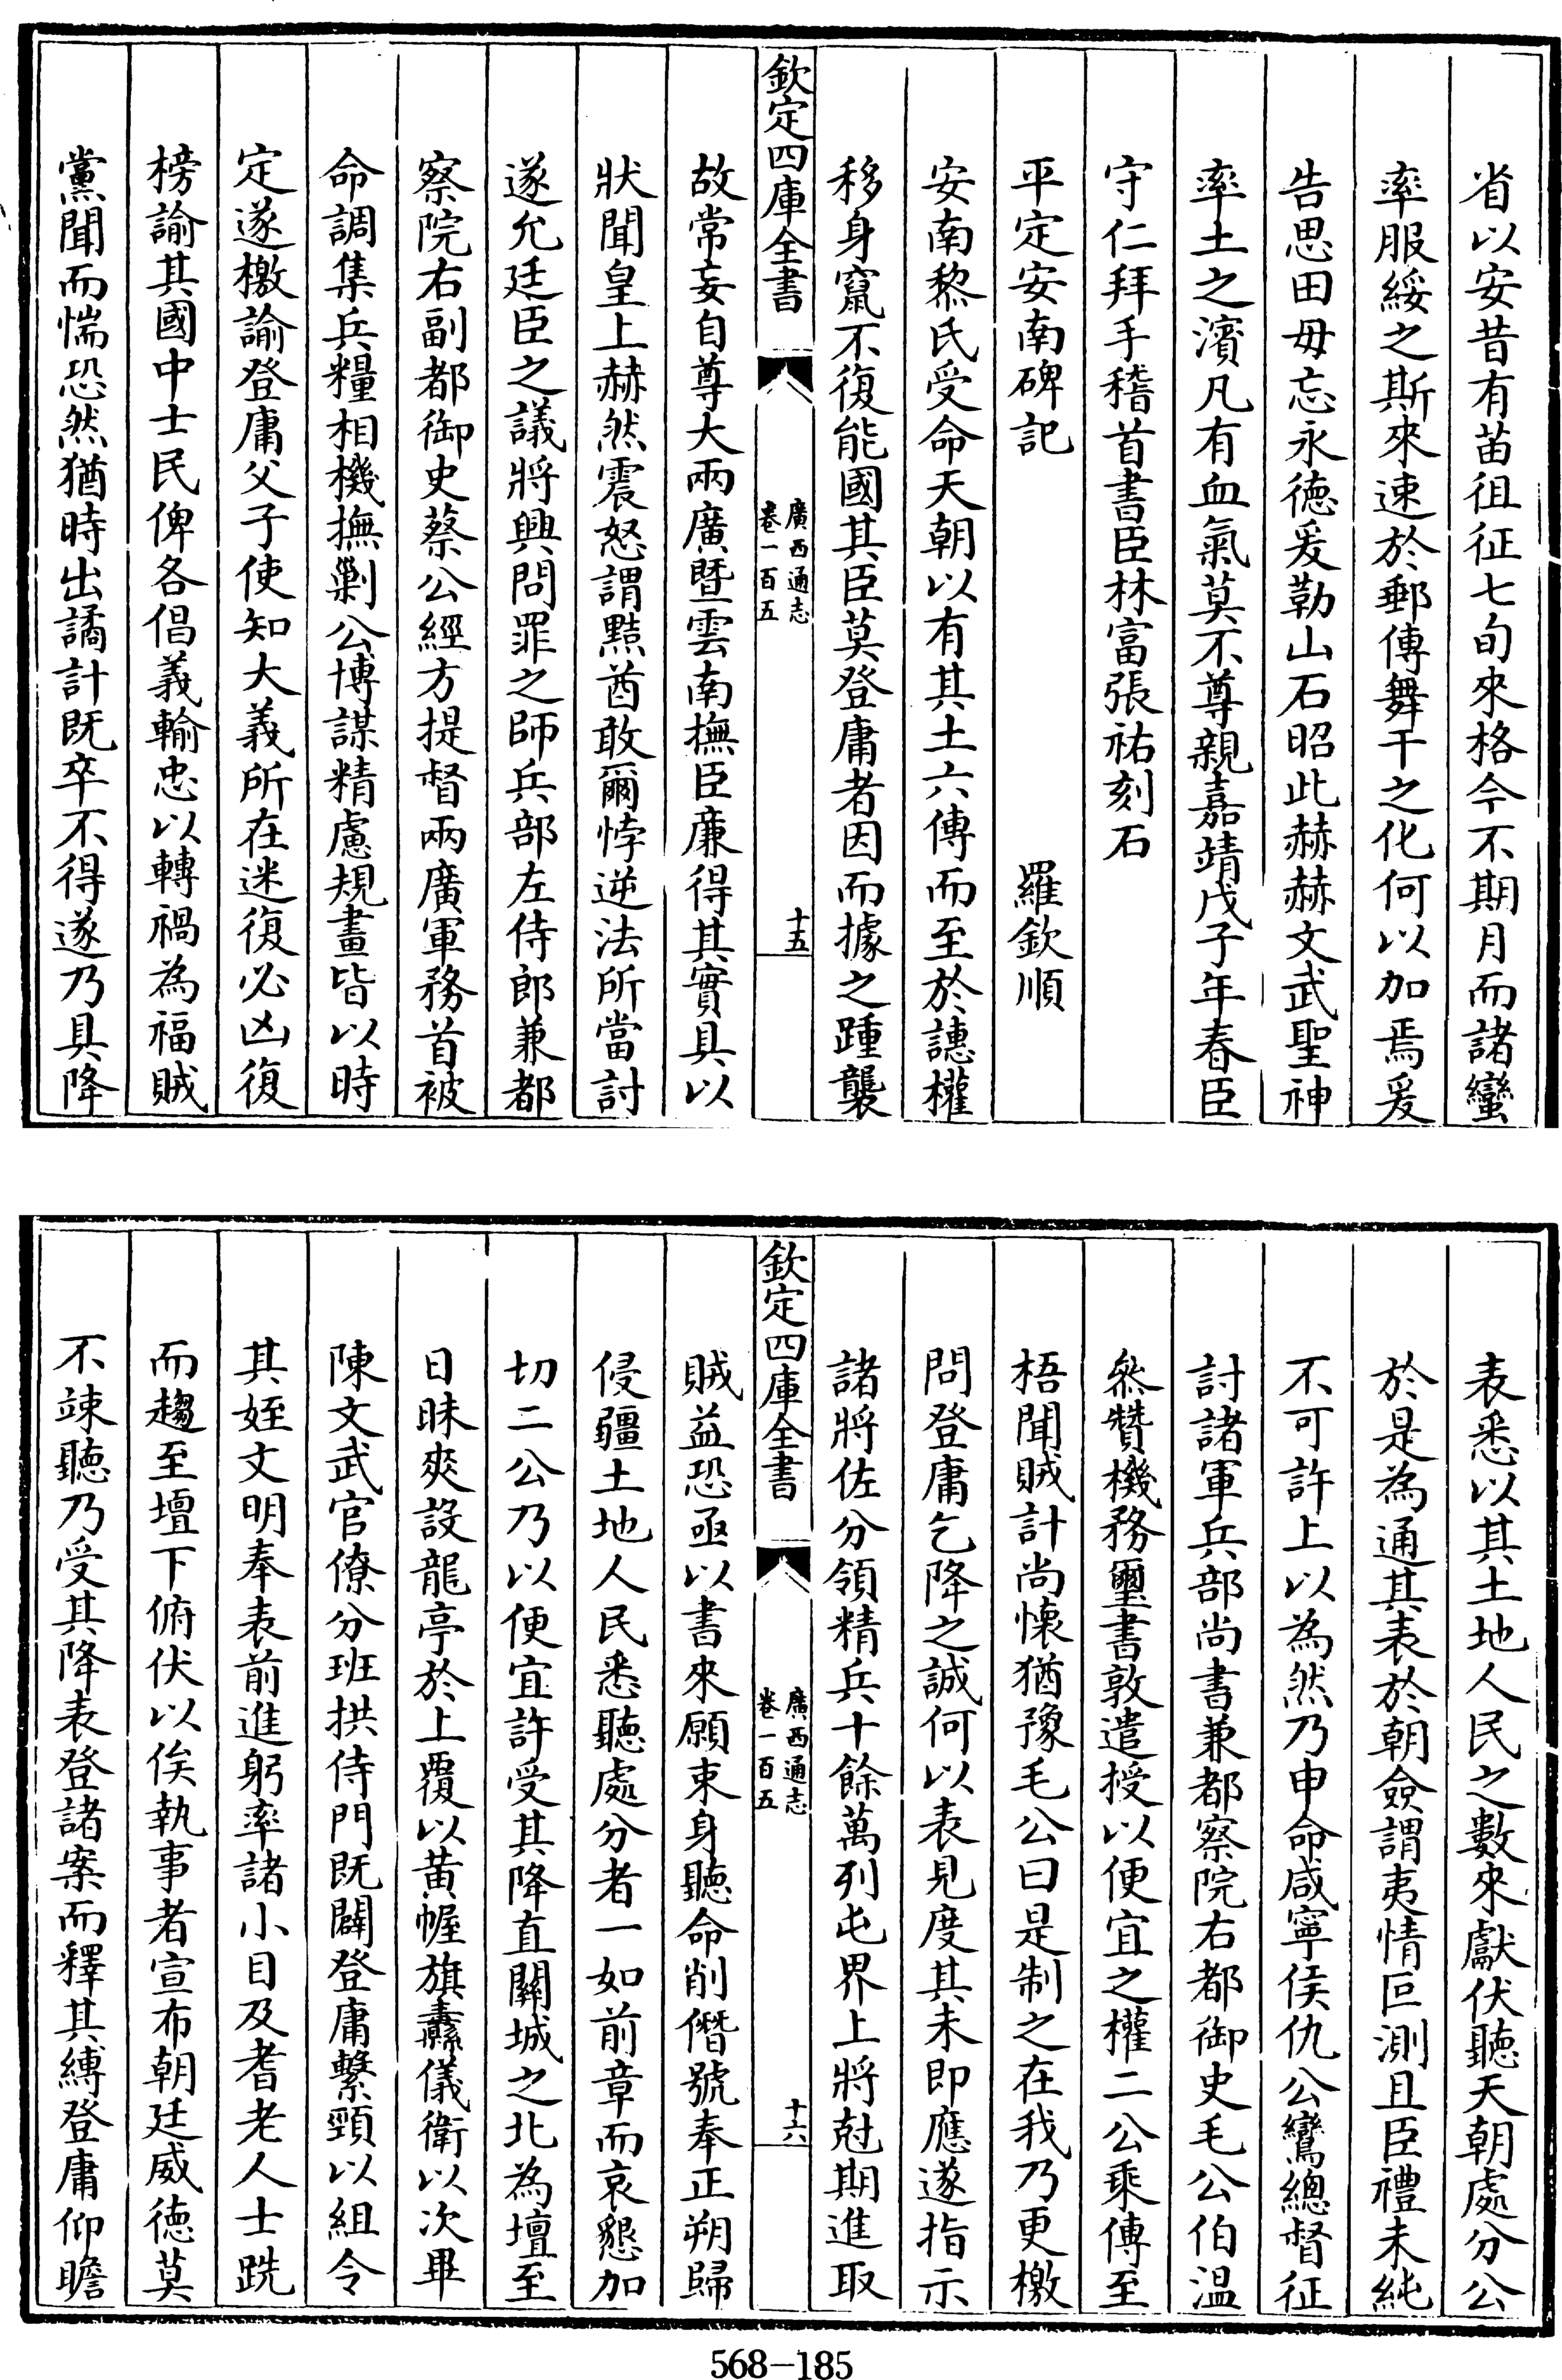 省以安昔有苗徂征七旬來格今不期月而諸蠻
率服綏之斯來速於郵傳舞干之化何以加焉爰
告思田毋忘永德爰勒山石昭此赫赫文武聖神
率土之濱凡有血氣莫不尊親嘉靖戊子年春臣
守仁拜手稽首書臣林富張祐刻石
平定安南碑記　羅欽順
安南黎氏受命天朝以有其土六傳而至於譓權
移身竄不復能國其臣莫登庸者因而據之踵襲
欽定四庫全書
廣西通志
卷一百五
十五
故常妄自尊大兩廣暨雲南撫臣廉得其實具以
狀聞皇上赫然震怒謂黠酋敢爾悖逆法所當討
遂允廷臣之議將興問罪之師兵部左侍郎兼都
察院右副都御史蔡公經方提督兩廣軍務首被
命調集兵糧相機撫剿公博謀精慮規畫皆以時
定遂檄諭登庸父子使知大義所在迷復必凶復
榜諭其國中士民俾各倡義輸忠以轉禍為福賊
黨聞而惴恐然猶時出譎計既卒不得遂乃具降
表悉以其土地人民之數來獻伏聽天朝處分公
於是為通其表於朝僉謂夷情叵測且臣禮未純
不可許上以為然乃申命咸寧侯仇公鸞總督征
討諸軍兵部尚書兼都察院右都御史毛公伯溫
叅贊機務璽書敦遣授以便宜之權二公乘傳至
梧聞賊計尚懷猶豫毛公曰是制之在我乃更檄
問登庸乞降之誠何以表見度其未即應遂指示
諸將佐分領精兵十餘萬列屯界上將尅期進取
欽定四庫全書
廣西通志
卷一百五
十六
賊益恐亟以書來願束身聽命削僭號奉正朔歸
侵疆土地人民悉聽處分者一如前章而哀懇加
切二公乃以便宜許受其降直關城之北為壇至
日昧爽設龍亭於上覆以黃幄旗纛儀衛以次畢
陳文武官僚分班拱侍門既闢登庸繫頸以組令
其姪文明奉表前進躬率諸小目及耆老人士跣
而趨至壇下俯伏以俟執事者宣布朝廷威德莫
不竦聽乃受其降表登諸案而釋其縛登庸仰瞻
568-185